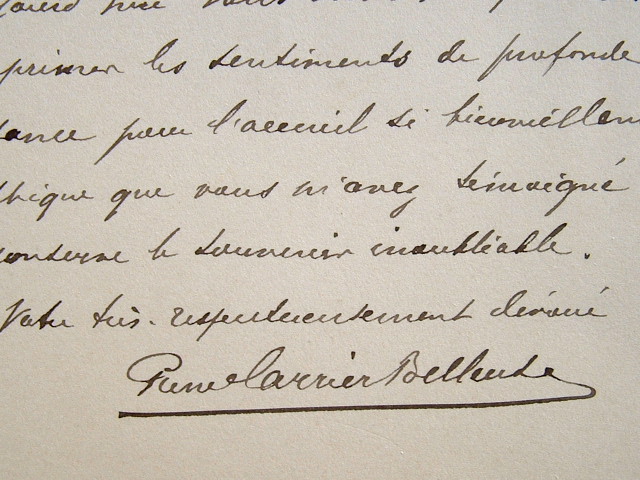 vous
primer les sentiments de profonde
sance pour l'accueil si bienveillan
thique que vous m'avez témoigné
conserve le souvenir inoubliable.
Votre très respectueusement dévoué
Pierre Carrier Belleuse